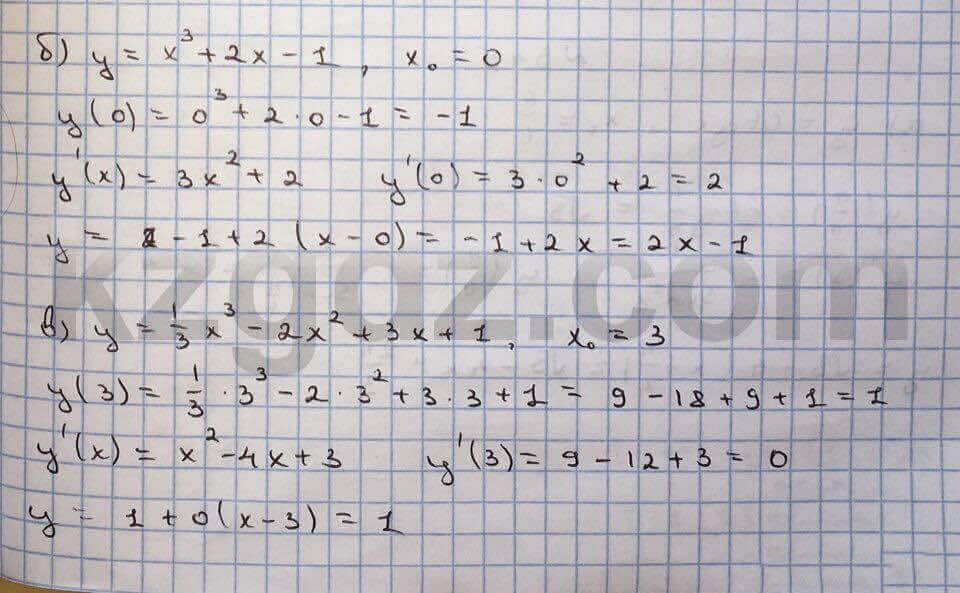 б) y = x³ + 2x - 1, x₀ = 0
y(0) = 0³ + 2·0 - 1 = -1
y'(x) = 3x² + 2 y'(0) = 3·0² + 2 = 2
y = -1 + 2(x - 0) = -1 + 2x = 2x - 1
kzgdz.com
в) y = 1/3 x³ - 2x² + 3x + 1, x₀ = 3
y(3) = 1/3 · 3³ - 2·3² + 3·3 + 1 = 9 - 18 + 9 + 1 = 1
y'(x) = x² - 4x + 3 y'(3) = 9 - 12 + 3 = 0
y = 1 + 0(x - 3) = 1